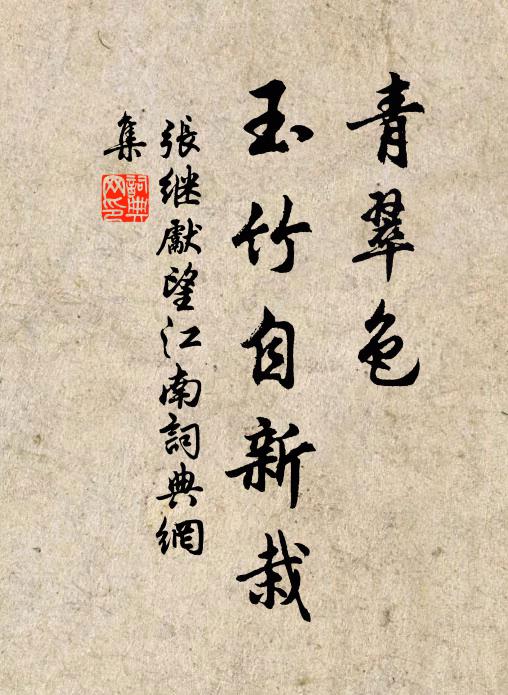 青翠色
玉竹自新栽
張继獻望江南詞典網
集
詞典
网印